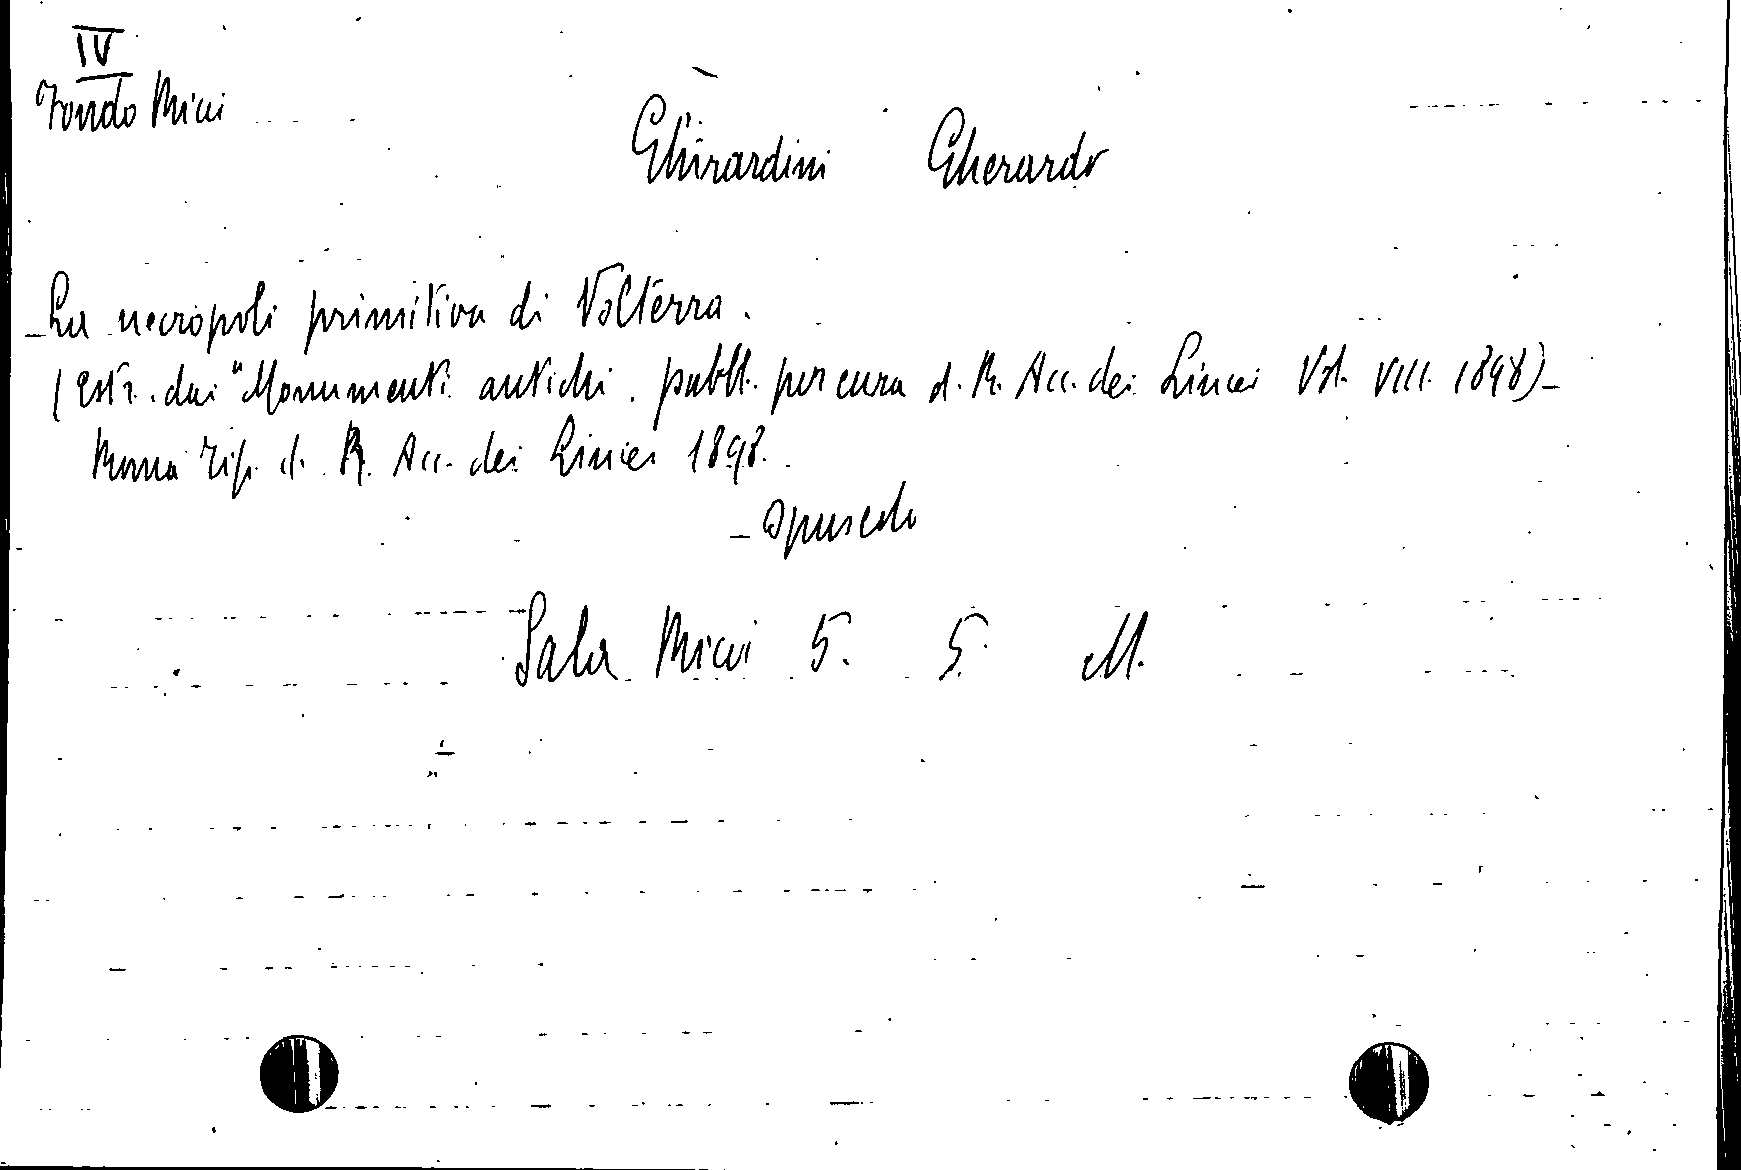 IV
Fondo Ricci
Ghirardini Gherardo
La necropoli primitiva di Volterra.
(Estr. dai "Monumenti antichi. pubbl. per cura d. R. Acc. dei Lincei Vol. VIII. 1898)-
Roma Tip. d. R. Acc. dei Lincei 1898.
- opuscolo
Sala Ricci 5. 5. M.